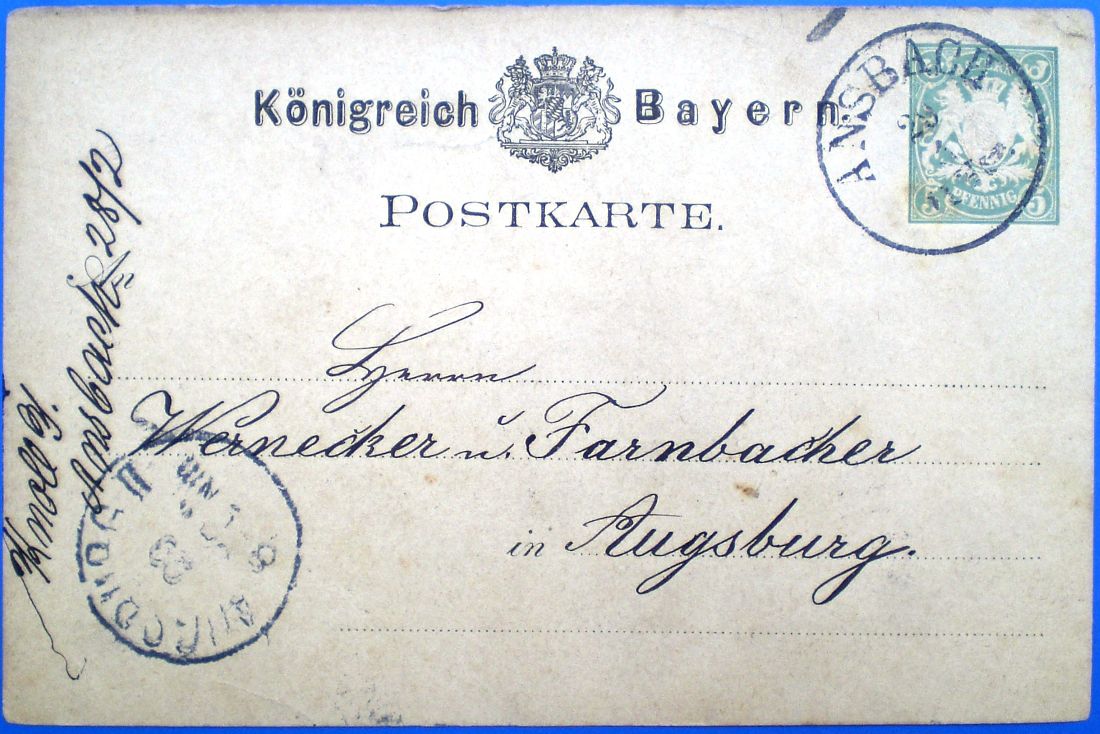 Königreich Bayern.
POSTKARTE.
ANSBACH
PFENNIG
Herrn
Wernecker u. Farnbacher
in Augsburg.
Ansbach 28/2
AUGSBURG II